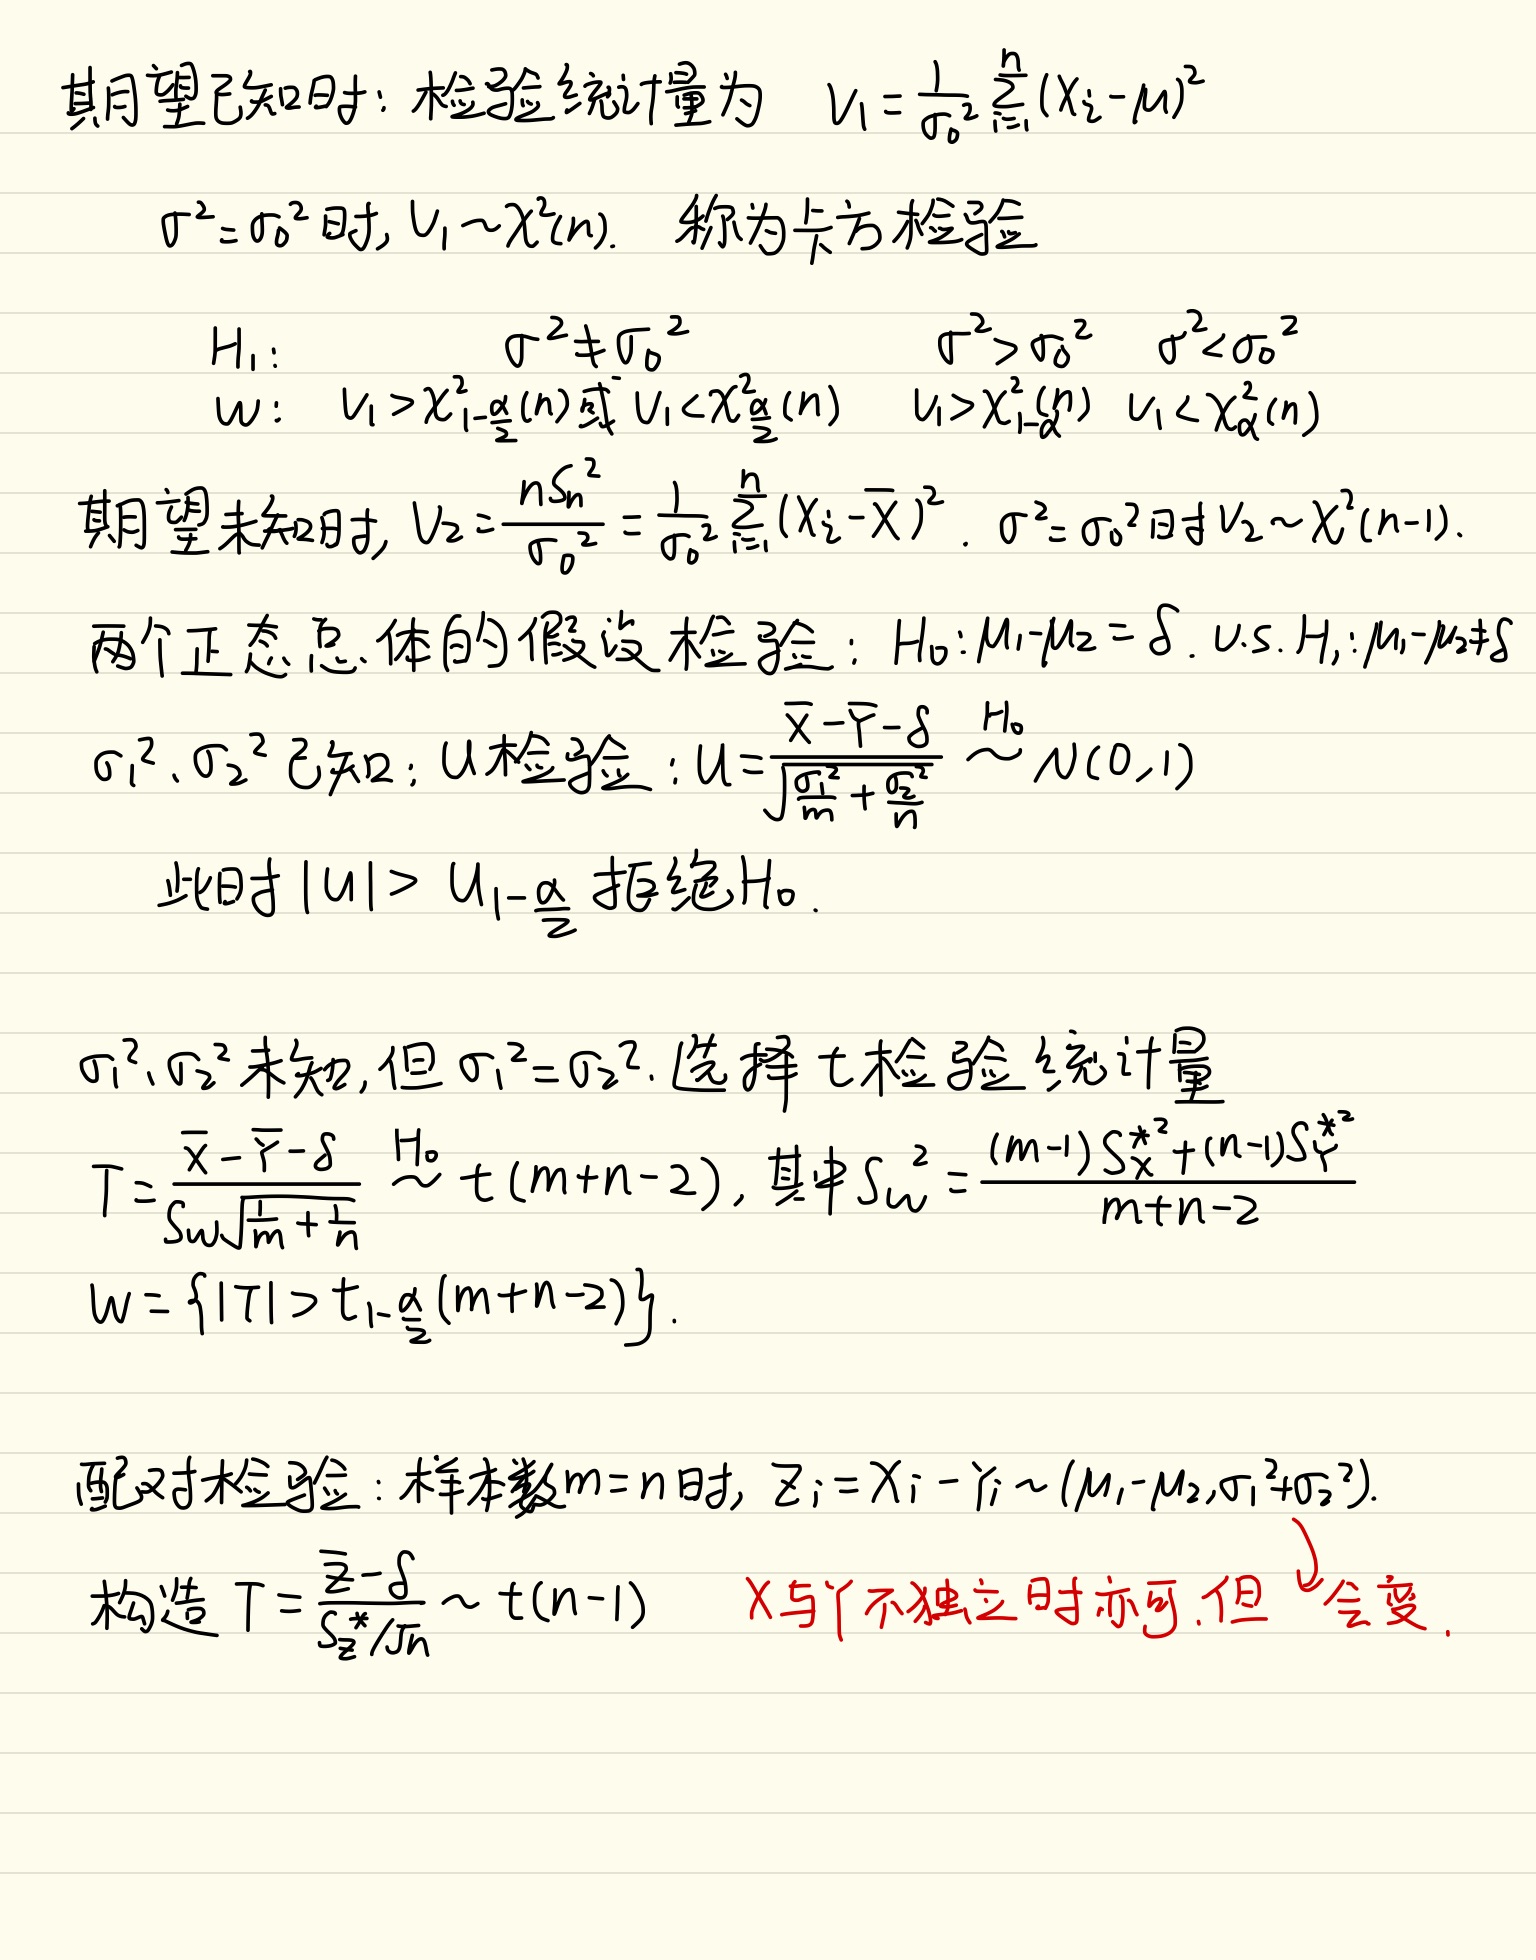 期望已知时: 检验统计量为 V₁ = \frac{1}{σ₀²} \sum_{i=1}^{n} (X_i - μ)²
σ² = σ₀² 时, V₁ ~ χ²(n). 称为卡方检验
H₁: σ² ≠ σ₀² σ² > σ₀² σ² < σ₀²
W: V₁ > χ²_{1-\frac{α}{2}}(n) 或 V₁ < χ²_{\frac{α}{2}}(n) V₁ > χ²_{1-α}(n) V₁ < χ²_{α}(n)
期望未知时, V₂ = \frac{nS_n²}{σ₀²} = \frac{1}{σ₀²} \sum_{i=1}^{n} (X_i - \overline{X})². σ² = σ₀² 时 V₂ ~ χ²(n-1).
两个正态总体的假设检验: H₀: μ₁-μ₂ = δ. v.s. H₁: μ₁-μ₂ ≠ δ
σ₁²、σ₂² 已知: U检验: U = \frac{\overline{X} - \overline{Y} - δ}{\sqrt{\frac{σ₁²}{m} + \frac{σ₂²}{n}}} \overset{H₀}{~} N(0,1)
此时 |U| > U_{1-\frac{α}{2}} 拒绝H₀.
σ₁²、σ₂² 未知, 但 σ₁² = σ₂². 选择 t检验统计量
T = \frac{\overline{X} - \overline{Y} - δ}{S_W \sqrt{\frac{1}{m} + \frac{1}{n}}} \overset{H₀}{~} t(m+n-2), 其中 S_W² = \frac{(m-1)S_X^{*2} + (n-1)S_Y^{*2}}{m+n-2}
W = {|T| > t_{1-\frac{α}{2}}(m+n-2)}.
配对检验: 样本数 m=n 时, Z_i = X_i - Y_i ~ (μ₁-μ₂, σ₁²+σ₂²).
构造 T = \frac{\overline{Z} - δ}{S_Z^*/\sqrt{n}} ~ t(n-1) X与Y不独立时亦可. 但 会变.